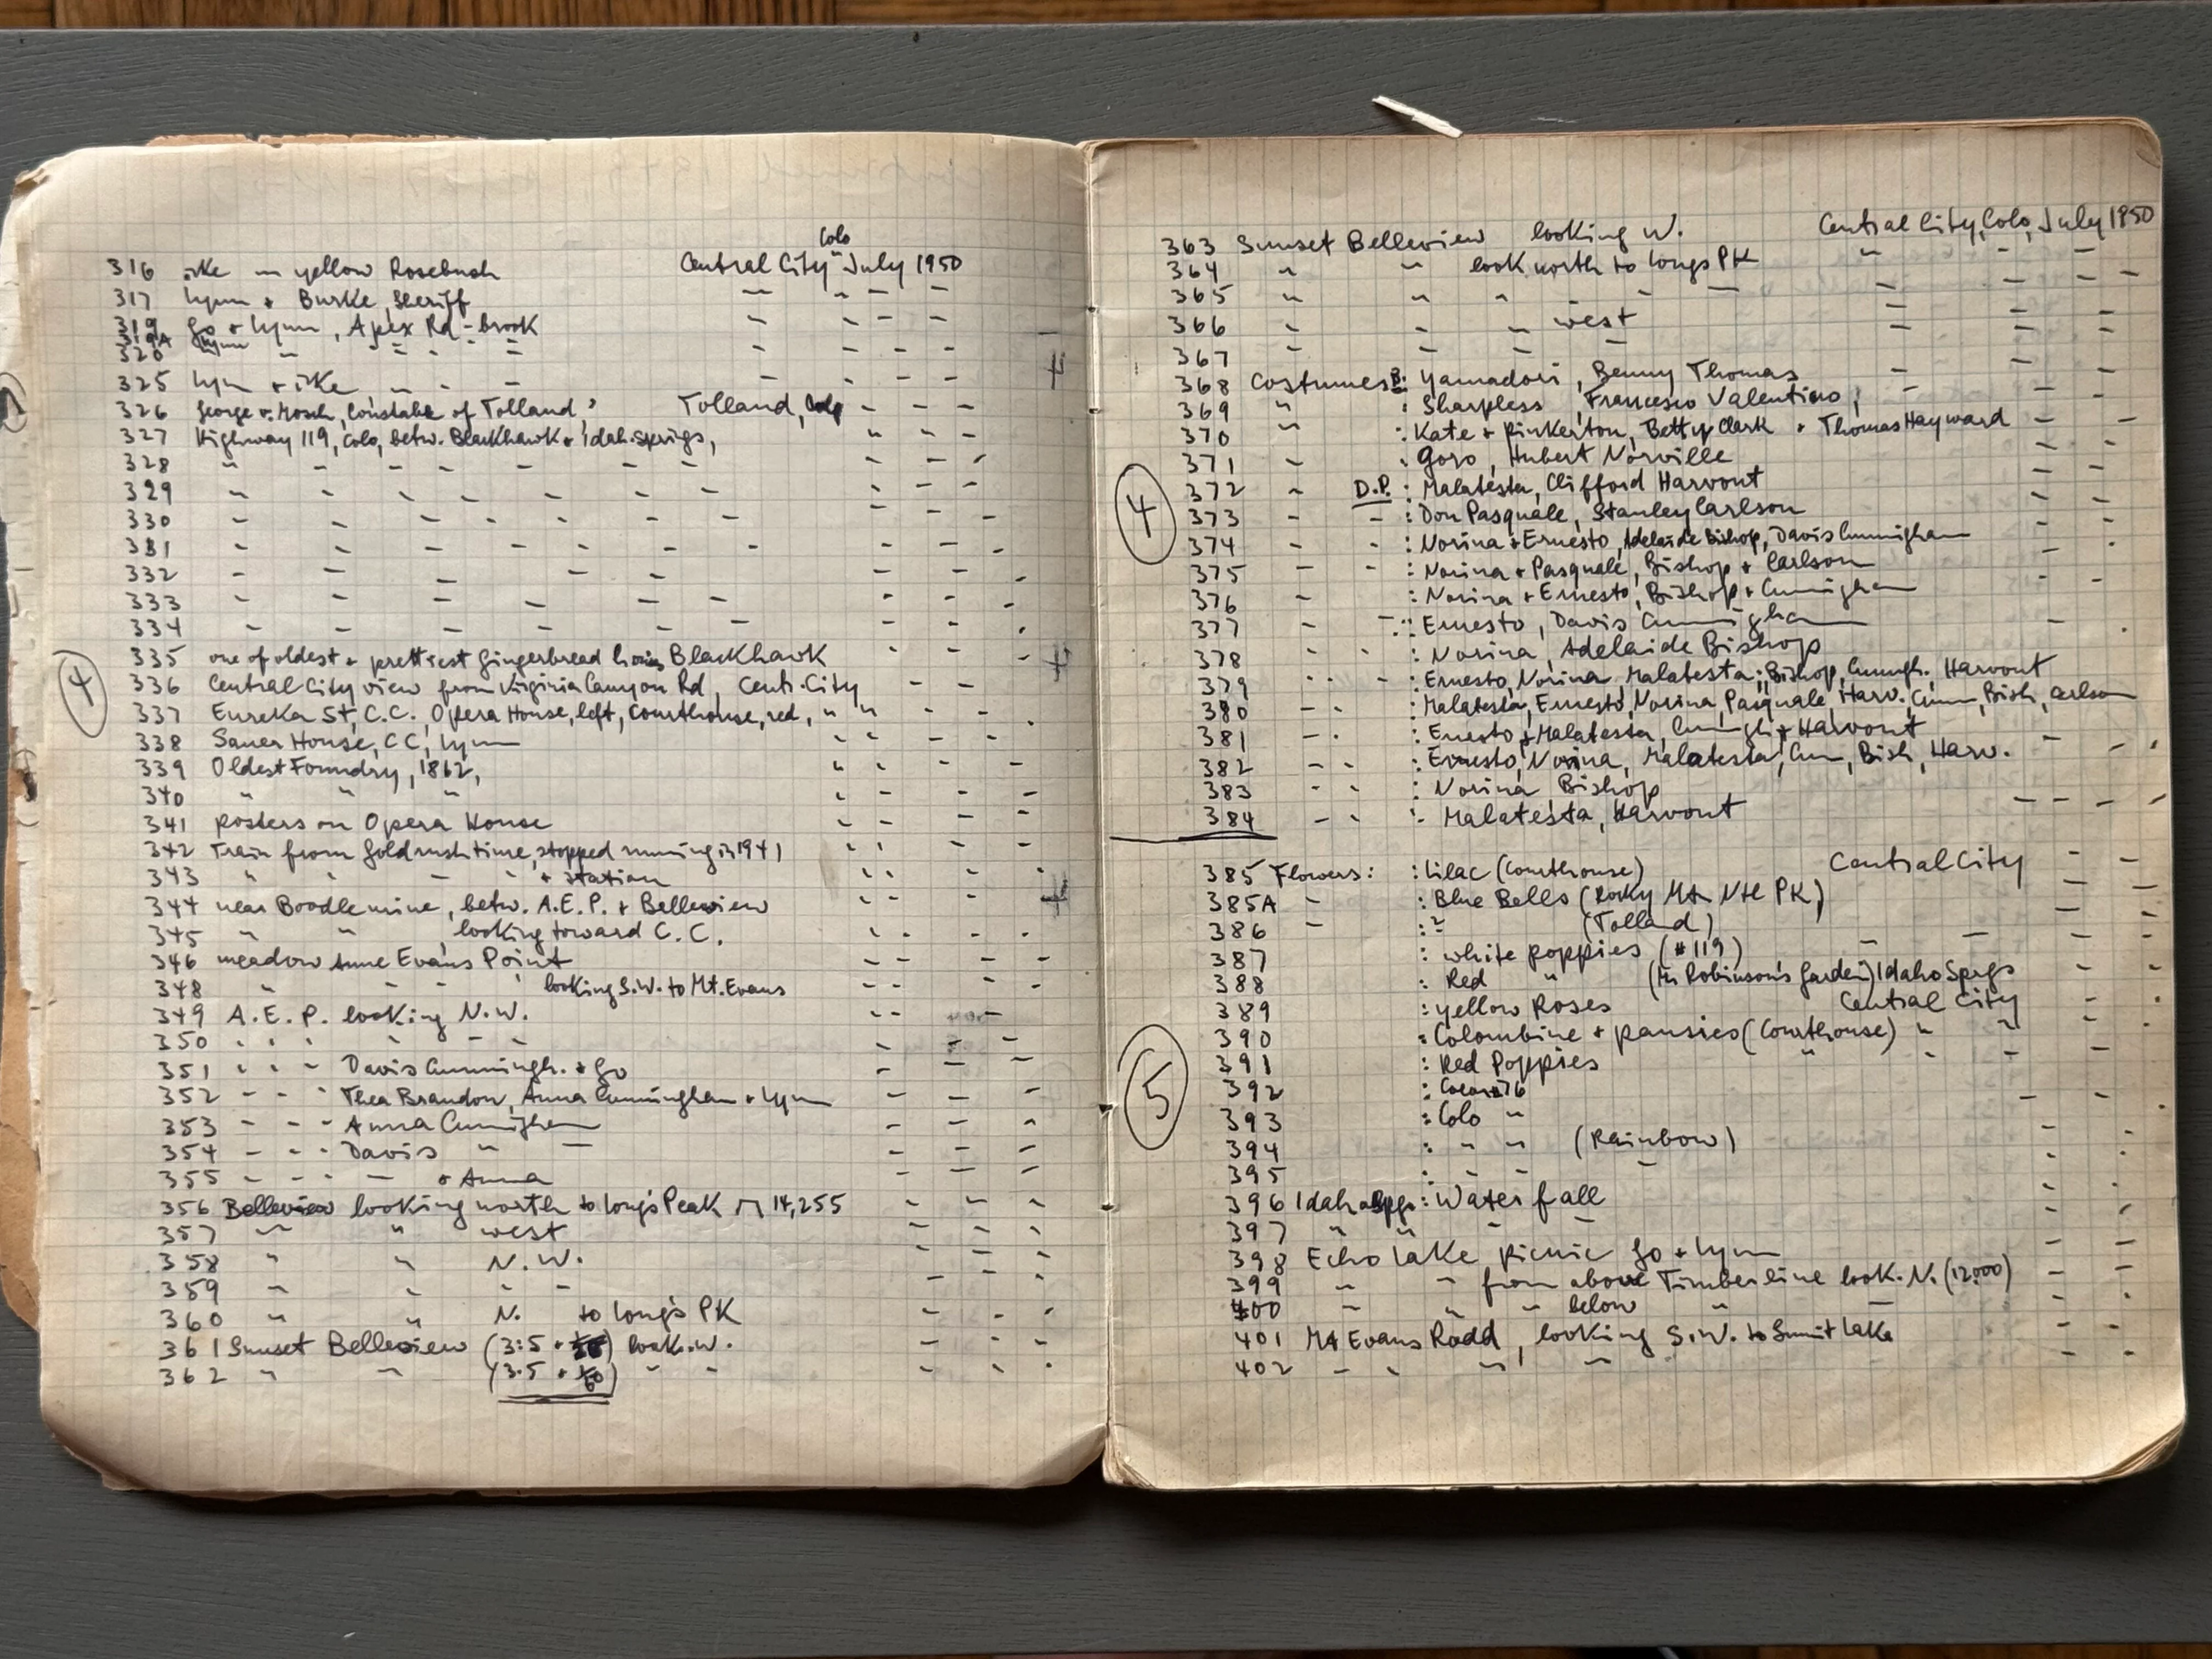 316 ike in yellow Rosebush Central City Colo July 1950
317 Lynn + Burke, Sheriff " " " "
319 Go + Lynn, Apex Rd - brook " " " "
319A Lynn
320 " " " " " " " "
325 Lynn + ike " " " " " " "
326 George v. Mosch, Constable of Tolland, Tolland, Colo " " "
327 Highway 119, Colo, betw. Blackhawk + Idah. Springs, " " "
328 " " " " " " " " "
329 " " " " " " " " " "
330 " " " " " " " " "
331 " " " " " " " " "
332 " " " " " " " "
333 " " " " " " " "
334 " " " " " " " "
335 one of oldest + prettiest gingerbread Blackhawk " " "
④
336 Central City view from Virginia Canyon Rd, Centr. City " "
337 Eureka St, C.C. Opera House, left, Courthouse, red, " " " " "
338 Sauer House, CC, Lynn " " " "
339 Oldest Foundry, 1862, " " " "
340 " " " " " " "
341 posters on Opera House " " " "
342 Train from Goldrush time, stopped running in 1941 " " " "
343 " " " " + station " " " "
344 near Boodle mine, betw. A.E.P. + Belleview " " " "
345 " " , looking toward C.C. " " " "
346 meadow Anne Evans Point " " " "
348 " " " " looking S.W. to Mt. Evans " " " "
349 A.E.P. looking N.W. " " "
350 " " " " " " " " "
351 " " " Davis Cunningh. + Go " " "
352 " " " Thea Brandon, Anna Cunningham + Lynn " " "
353 " " " Anna Cunningham " " "
354 " " " Davis " " " "
355 " " " " + Anna " " "
356 Belleview looking north to Longs Peak 14,255 " " "
357 " " west " " "
358 " " N.W. " " "
359 " " " " " " "
360 " " N. to Longs PK " " "
361 Sunset Belleview (3:5 + ) look. W. " " "
362 " " (3.5 + 1/60) " " " " "
363 Sunset Belleview looking W. Central City, Colo, July 1950
364 " " look north to Longs PK " " " "
365 " " " " " " " "
366 " " " west " " "
367 " " " " " " "
368 Costumes B: Yamadori, Benny Thomas " " "
369 " : Sharpless, Francesco Valentino, " " "
370 " : Kate + Pinkerton, Betty Clark + Thomas Hayward " " "
371 " : Goro, Hubert Norville " " "
④
372 " D.P. : Malatesta, Clifford Harvout " " "
373 " " : Don Pasquale, Stanley Carlson " " "
374 " " : Norina + Ernesto, Adelaide Bishop, Davis Cunningham " "
375 " " : Norina + Pasquale, Bishop + Carlson " "
376 " : Norina + Ernesto, Bishop + Cunningham " "
377 " : Ernesto, Davis Cunningham " "
378 " " : Norina, Adelaide Bishop " "
379 " " : Ernesto, Norina, Malatesta; Bishop, Cunningh. Harvout
380 " " : Malatesta, Ernesto, Norina, Pasquale, Harv. Cunn, Bish, Carlson
381 " " : Ernesto + Malatesta, Cunningh + Harvout
382 " " : Ernesto, Norina, Malatesta, Cun, Bish, Harv. " " "
383 " " : Norina Bishop
384 " " : Malatesta, Harvout " " " "
385 Flowers: : Lilac (Courthouse) Central City " "
385A " : Blue Bells (Rocky Mt. Ntl PK) " "
386 " : ? (Tolland) " "
387 : white poppies (#119) " " " "
388 : Red " (Mr Robinson's Garden) Idaho Sprgs " "
389 : yellow Roses Central City " "
390 : Colombine + pansies (Courthouse) " " " "
⑤
391 : Red Poppies " " " " "
392 :
393 : Colo " " " "
394 : " " (Rainbow) " "
395 : " " " " "
396 Idaho Spgs : Waterfall " "
397 " " " " " "
398 Echo Lake picnic Go + Lynn " "
399 " " from above Timberline look. N. (12.000) " "
400 " " " below " " " "
401 Mt Evans Road, looking S.W. to Summit Lake " "
402 " " " " " "